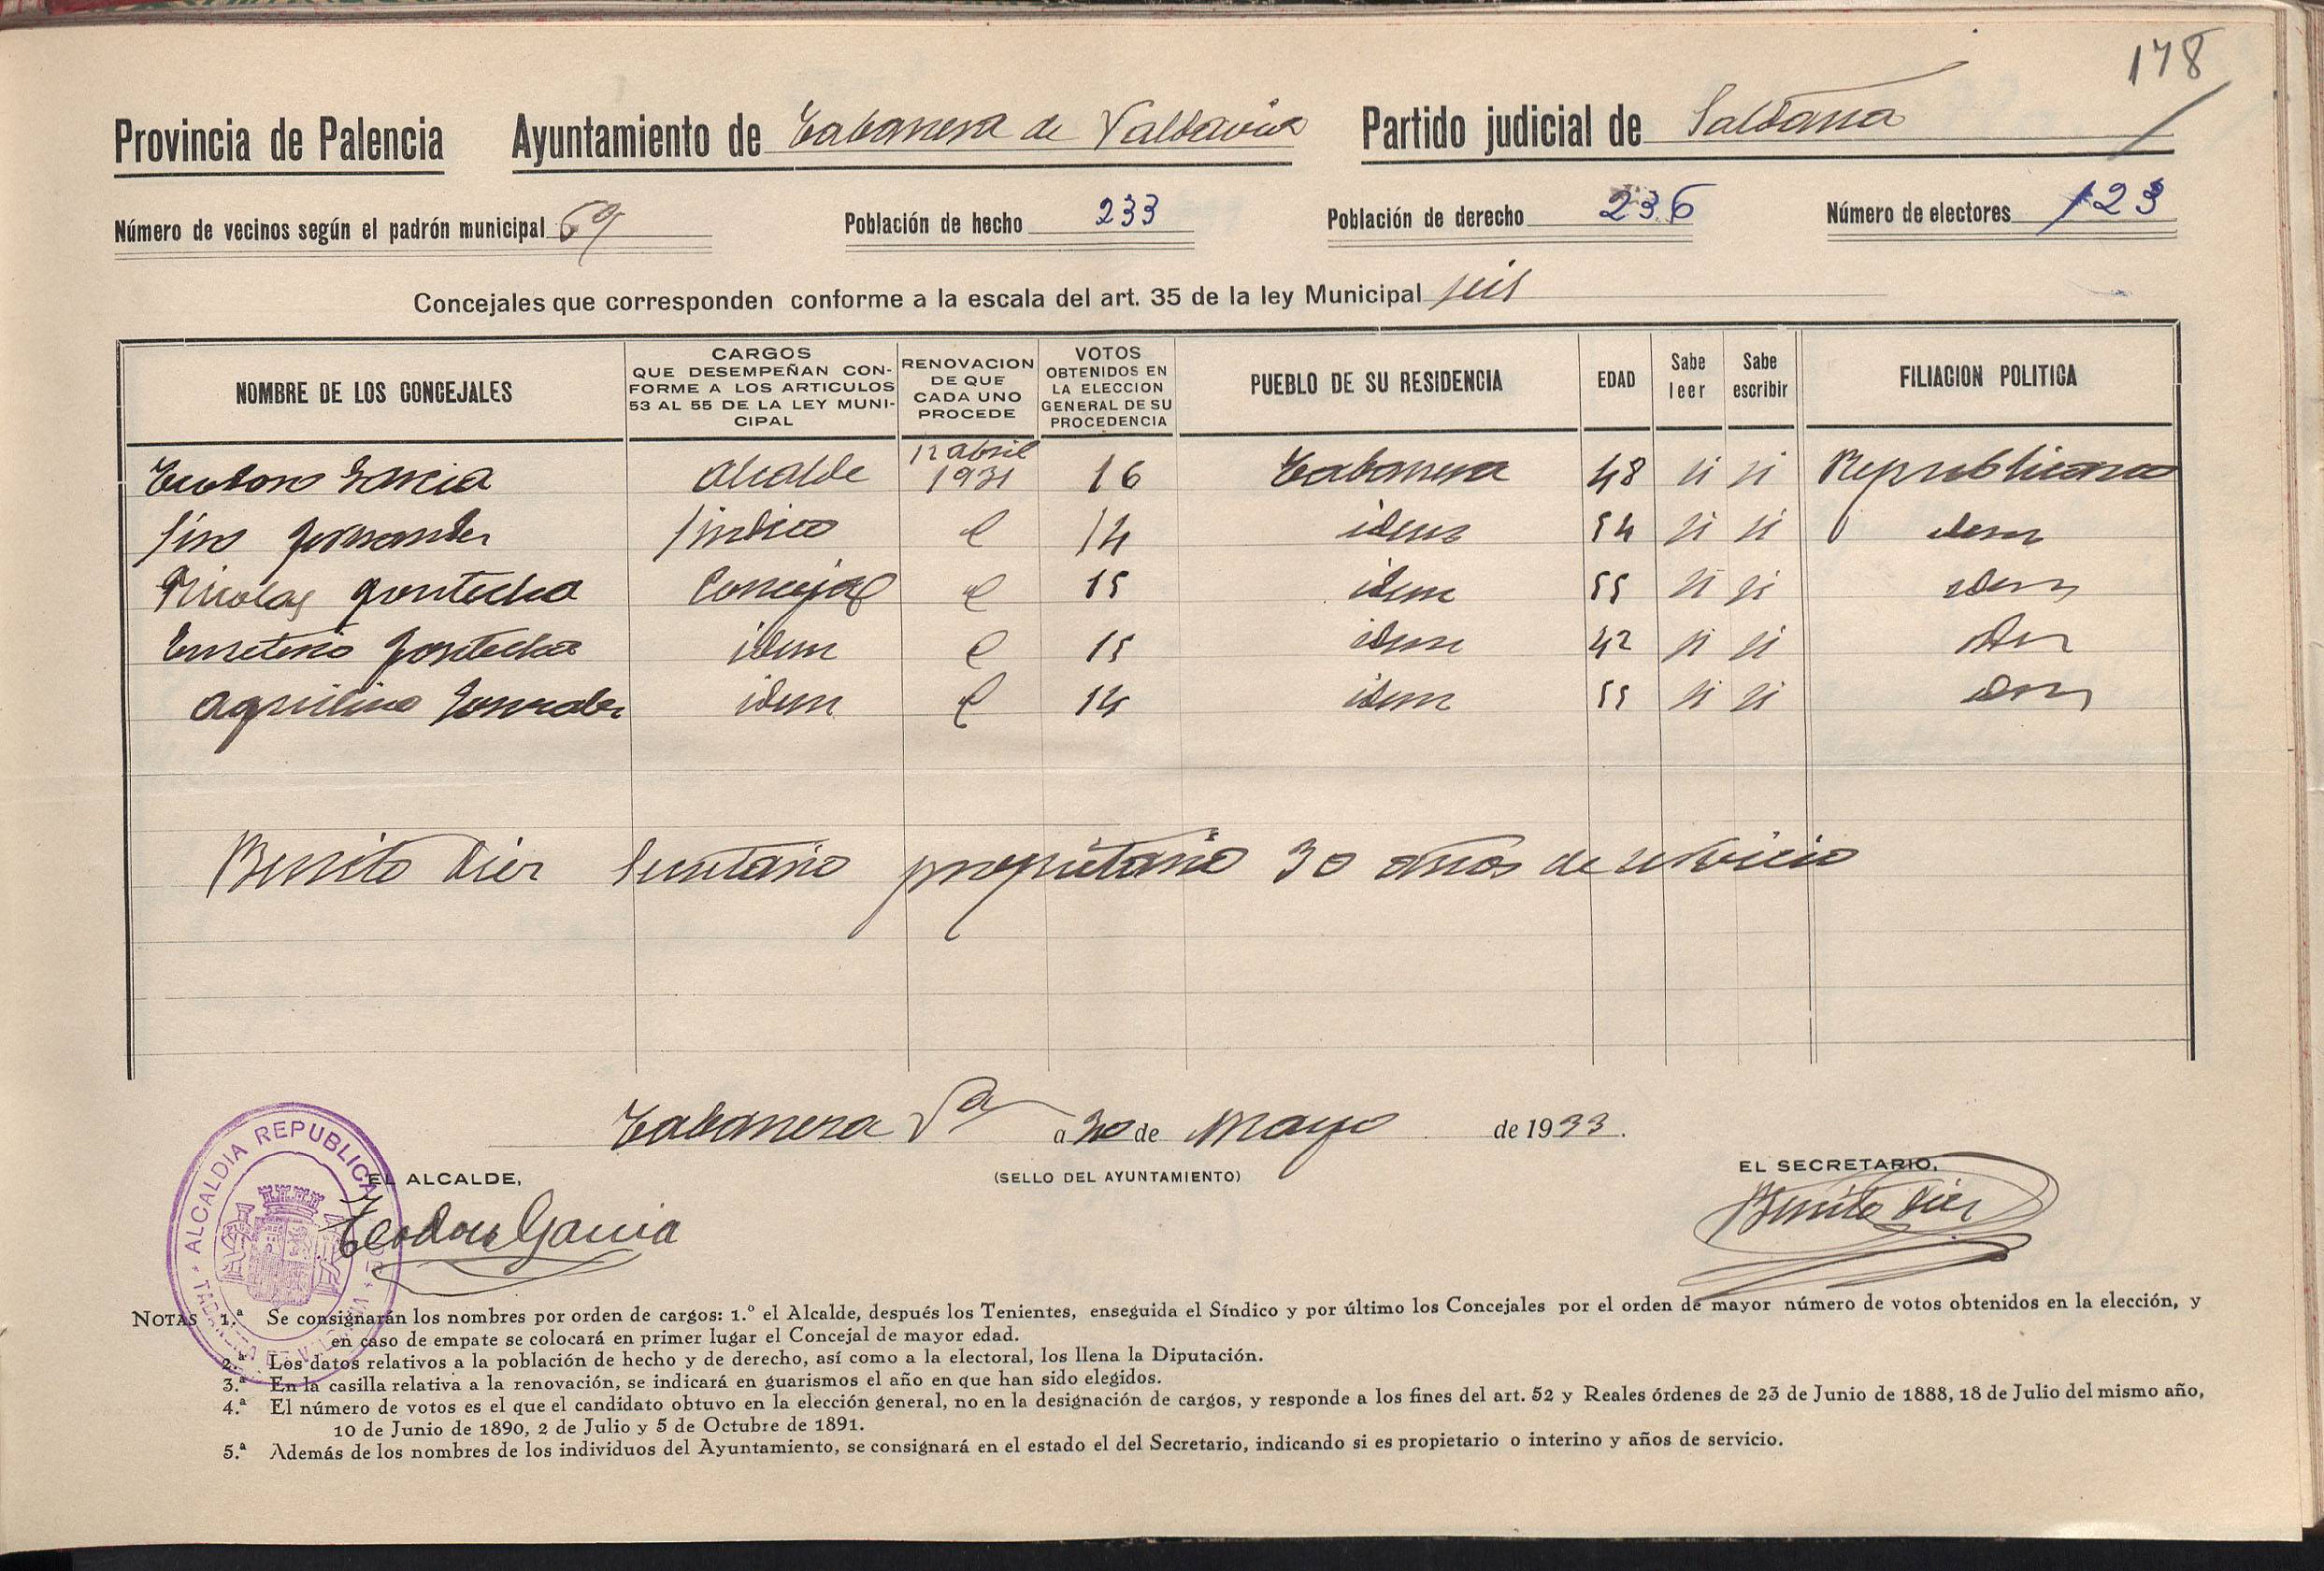 178
Provincia de Palencia Ayuntamiento de Tabanera de Valdavia Partido judicial de Saldaña
Número de vecinos según el padrón municipal 69 Población de hecho 233 Población de derecho 236 Número de electores 123
Concejales que corresponden conforme a la escala del art. 35 de la ley Municipal seis
NOMBRE DE LOS CONCEJALES CARGOS QUE DESEMPEÑAN CONFORME A LOS ARTICULOS 53 AL 55 DE LA LEY MUNICIPAL RENOVACION DE QUE CADA UNO PROCEDE VOTOS OBTENIDOS EN LA ELECCION GENERAL DE SU PROCEDENCIA PUEBLO DE SU RESIDENCIA EDAD Sabe leer Sabe escribir FILIACION POLITICA
Teodoro Garcia Alcalde 12 abril 1931 16 Tabanera 48 si si Republicano
Sindico 14 idem 54 si si idem
Nicolas Gontecha Concejal 15 idem 55 si si idem
Emeterio Gontecha idem 15 idem 42 si si idem
Aquilino Gonzalez idem 14 idem 55 si si idem
Benito Diez Secretario propietario 30 años de servicio
Tabanera Va a 30 de Mayo de 1933.
EL ALCALDE, (SELLO DEL AYUNTAMIENTO) EL SECRETARIO,
Teodoro Garcia Benito Diez
ALCALDIA REPUBLICANA
NOTAS 1.ª Se consignarán los nombres por orden de cargos: 1.º el Alcalde, después los Tenientes, enseguida el Síndico y por último los Concejales por el orden de mayor número de votos obtenidos en la elección, y
en caso de empate se colocará en primer lugar el Concejal de mayor edad.
2.ª Los datos relativos a la población de hecho y de derecho, así como a la electoral, los llena la Diputación.
3.ª En la casilla relativa a la renovación, se indicará en guarismos el año en que han sido elegidos.
4.ª El número de votos es el que el candidato obtuvo en la elección general, no en la designación de cargos, y responde a los fines del art. 52 y Reales órdenes de 23 de Junio de 1888, 18 de Julio del mismo año,
10 de Junio de 1890, 2 de Julio y 5 de Octubre de 1891.
5.ª Además de los nombres de los individuos del Ayuntamiento, se consignará en el estado el del Secretario, indicando si es propietario o interino y años de servicio.